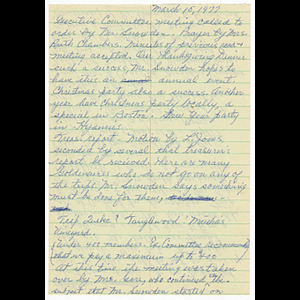 March 15, 1977
Executive Committee meeting called to
order by Mr. Snowden. Prayer by Mrs.
Ruth Chambers. Minutes of previous
meeting accepted. Our Thanksgiving Dinner
such a success Mr. Snowden hopes to
have it as an annual event.
Christmas party also a success. Another
year have Christmas party locally, a
special in Boston. New Year party
in Hyannis.
Treas. report - Motion by L. Jones
seconded by several that treasurer's
report be recieved. There are many
Goldenaires who do not go on any of
the trips Mr. Snowden says something
must be done for them,
Trip Quebec? Tanglewood?
Vineyard.
Under 400 members. Ex. Committee recommends
that we pay a maximum up to 400
At this time the meeting was taken
over by Mrs. Cory, who continued the
subject that Mr. Snowden started on